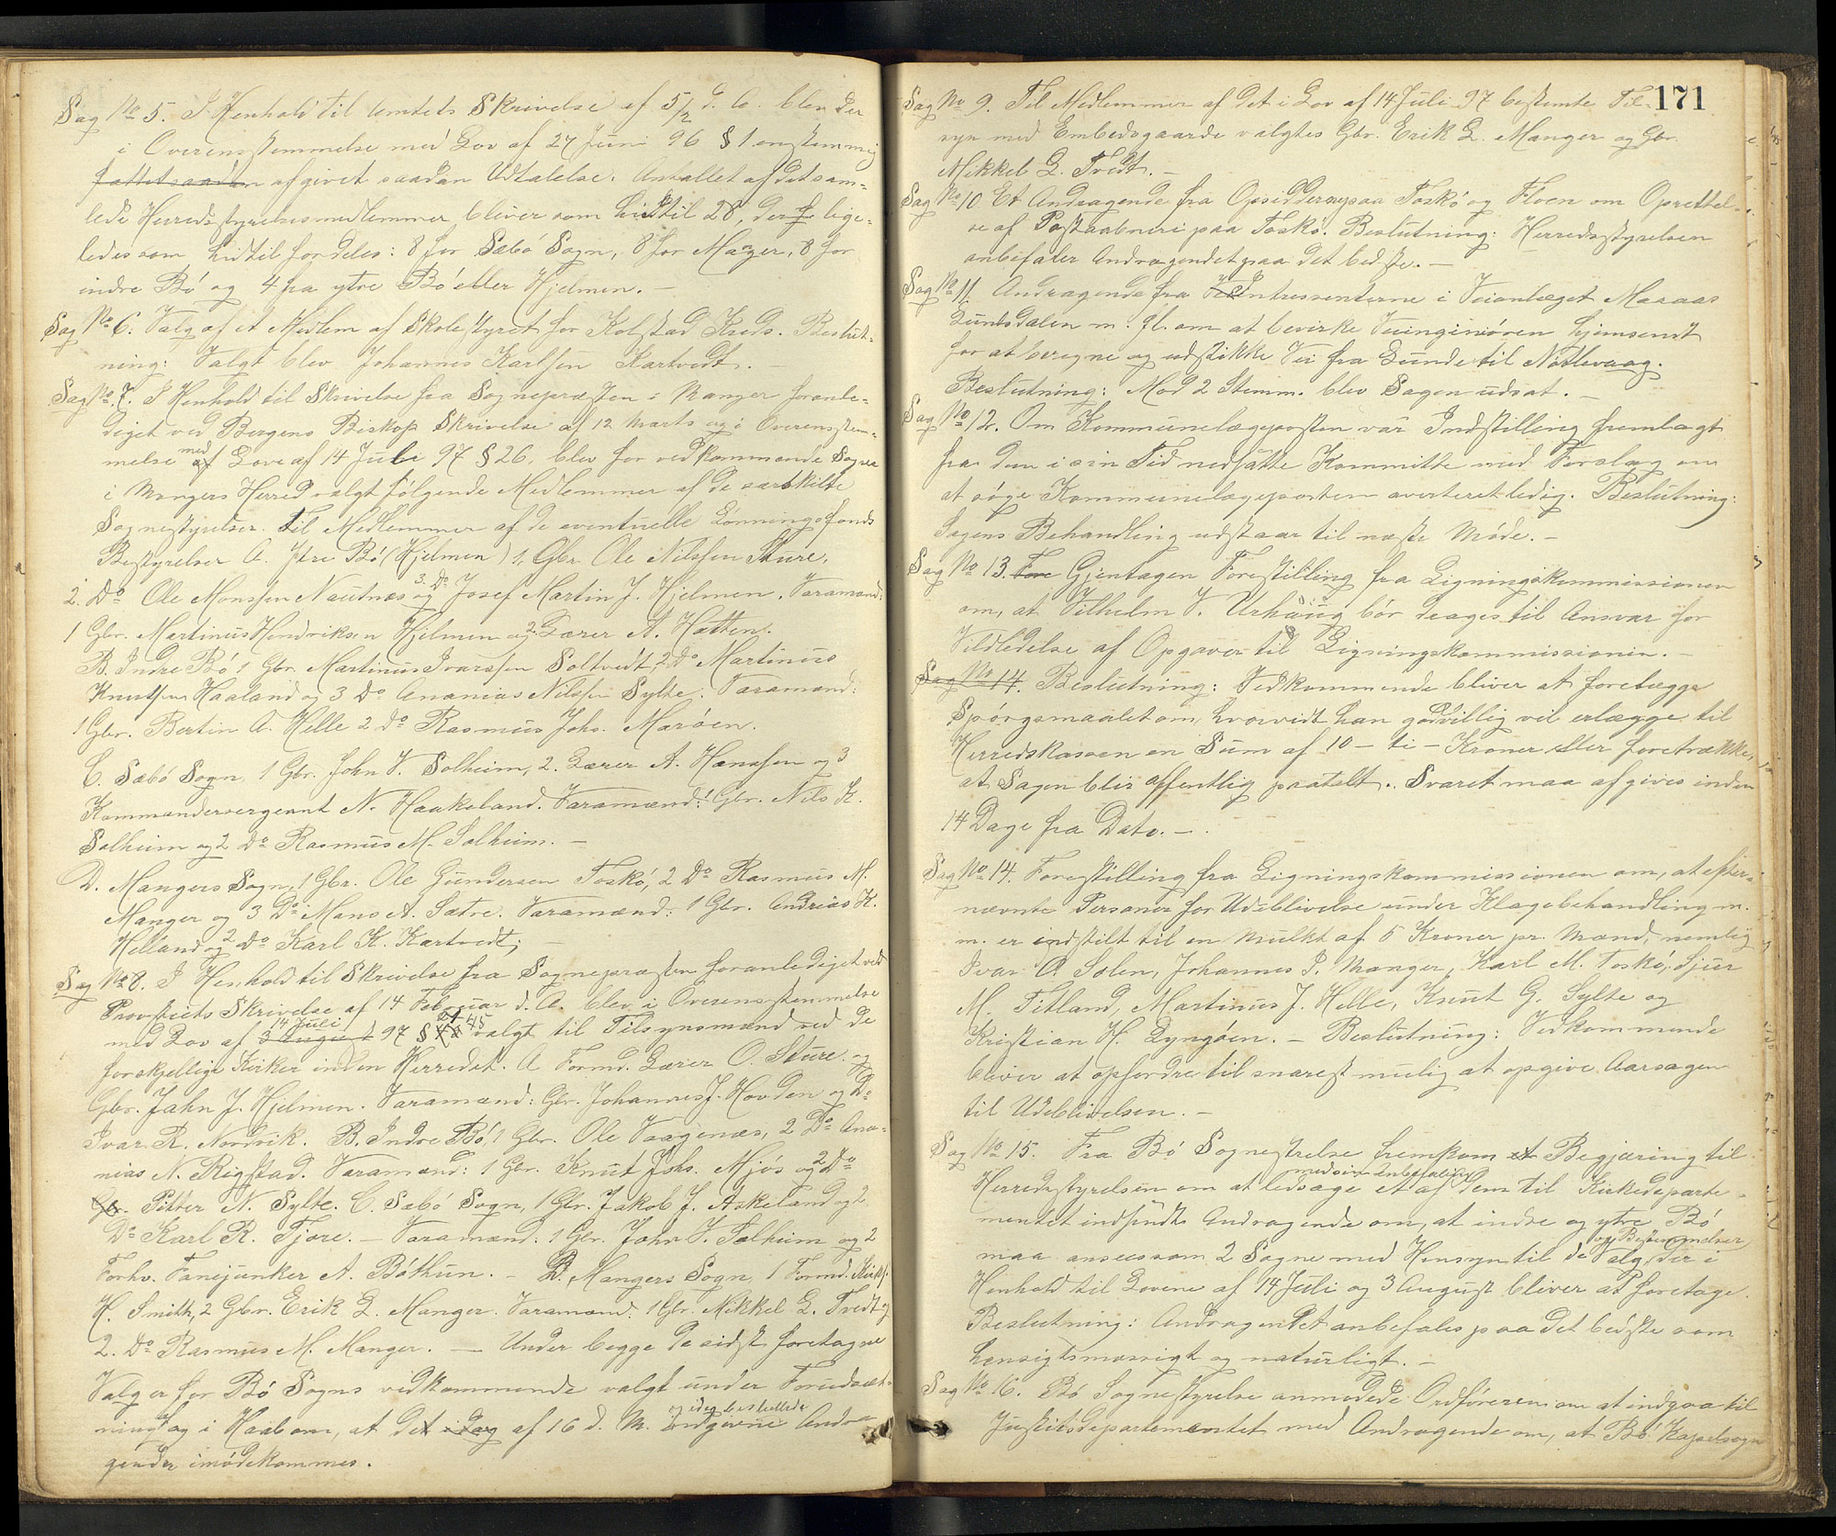 Sag No 5. I Henhold til Amtets Skrivelse af 5/2 d. A. blev der
i Overensstemmelse med Lov af 27 Juni 96 § 1 enstemmig
fattet saadan afgivet saadan Udtalelse: Antallet af det sam-
lede Herredsstyrelsesmedlemmer bliver som hidtil 28, der lige-
ledes som hidtil fordeles: 8 for Sæbø Sogn, 8 for Manger, 8 for
indre Bø og 4 fra ytre Bø eller Hjelmen. —
Sag No 6. Valg af et Medlem af Skolestyret for Kolstad Kreds. Beslut-
ning: Valgt blev Johannes Karlsen Kartvedt. —
Sag No. 7. I Henhold til Skrivelse fra Sognepræsten i Manger foranle-
diget ved Bergens Biskop Skrivelse af 12 Marts og i Overensstem-
melse med af Love af 14 Juli 97 § 26, blev for vedkommende Sogne
i Mangers Herred valgt følgende Medlemmer af de særskilte
Sognestyrelser. Til Medlemmer af de eventuelle Lønningsfonds
Bestyrelser A. Ytre Bø (Hjelmen) 1, Gbr. Ole Nilssen Sture,
2. Do Ole Monssen Nautnæs og 3. Do Josef Martin J. Hjelmen. Varamænd:
1 Gbr. Martinus Hendriksen Hjelmen og 2 Lærer A. Hatten.
B. Indre Bø 1 Gbr. Martinus Ivarssen Soltvedt, 2 Do Martinus
Knutssen Haaland og 3 Do Ananias Nilssen Sylte. Varamænd:
1 Gbr. Bertin A. Helle 2 Do Rasmus Johs. Marøen.
C. Sæbø Sogn, 1 Gbr. John V. Solheim, 2. Lærer A. Hanssen og 3
Kommandersergeant N. Haakeland. Varamænd: 1 Gbr. Nils K.
Solheim og 2 Do Rasmus M. Solheim. —
D. Mangers Sogn, 1 Gbr. Ole Gundersen Toskø, 2 Do Rasmus M.
Manger og 3 Do Mons A. Sætre. Varamænd: 1 Gbr. Andreas K.
Helland og 2 Do Karl K. Kartvedt; —
Sag No 8. I Henhold til Skrivelse fra Sognepræsten foranlediget ved
Provstiets Skrivelse af 14 Februar d. A. blev i Overensstemmelse
med Lov af 14 Juli 3 August 97 § 45 valgt til Tilsynsmænd ved de
forskjellige Kirker inden Herredet. A Formd. Lærer O. Sture. og
Gbr. Jahn J. Hjelmen. Varamænd: Gbr. Johannes J. Hovden og Do
Ivar R. Nordvik. B. Indre Bø, 1 Gbr. Ole Vaagenæs, 2 Do Ana-
nias N. Rigstad. Varamænd: 1 Gbr. Knut Johs. Mjøs og 2 Do
Gbr. Pitter N. Sylte. C. Sæbø Sogn, 1 Gbr. Jakob J. Askeland og 2
Do Karl R. Fjøre. — Varamænd: 1 Gbr. John V. Solheim og 2
Forhv. Fanejunker A. Bøthun. — D. Mangers Sogn, 1 Formd.
H. Smith, 2 Gbr. Erik L. Manger. Varamænd: 1 Gbr. Mikkel L. Tvedt og
2. Do Rasmus M. Manger. — Under begge de sidst foretagne
Valg er for Bø Sogns vedkommende valgt under Forudsæt-
ning og i Haab om, at det i Dag af 16 d. M. indgivne og idag besluttede Andra-
gender imødekommes.
171
Sag No 9. Til Medlemmer af det i Lov af 14 Juli 97 bestemte Til-
syn med Embedsgaarde valgtes Gbr. Erik L. Manger og Gbr.
Mikkel L. Tvedt. —
Sag No 10 Et Andragende fra Opsidderne paa Toskø og Floen om Oprettel-
se af Postaabneri paa Toskø. Beslutning: Herredsstyrelsen
anbefaler Andragendet paa det bedste. —
Sag No 11 Andragende fra Intressenterne i Veianlæget Maraas
Lundsdalen m. fl. om at bevirke Veiingeniøren hjemsendt
for at beregne og udstikke Vei fra Lunde til Nøtlevaag.
Beslutning: Mod 2 Stemm. blev Sagen udsat. —
Sag No 12. Om Kommunelægeposten var Indstilling fremlagt
fra den i sin Tid nedsatte Kommitte med Forslag om
at søge Kommunelægeposten averteret ledig. Beslutning:
Sagens Behandling udstaar til næste Møde. —
Sag No 13. Fore Gjentagen Forestilling fra Ligningskommissionen
om, at Vilhelm V. Urhaug bør drages til Ansvar for
Vildledelse af Opgaver til Ligningskommissionen. —
Sag No 14. Beslutning: Vedkommende bliver at forelægge
Spørgsmaalet om, hvorvidt han godvillig vil erlægge til
Herredskassen en Sum af 10 – ti – Kroner eller foretrække,
at Sagen blir offentlig paatalt. Svaret maa afgives inden
14 Dage fra Dato. —
Sag No 14. Forestilling fra Ligningskommissionen om, at efter-
nævnte Personer for Udeblivelse under Klagebehandling m.
m. er indstilt til en Mulkt af 5 Kroner pr. Mand, nemlig
Ivar O. Solen, Johannes P. Manger, Karl M. Toskø, Sjur
M. Titland, Martinus J. Helle, Knut G. Sylte og
Kristian H. Lyngøen. — Beslutning: Vedkommende
bliver at opfordre til snarest mulig at opgive Aarsagen
til Udeblivelsen. —
Sag No 15. Fra Bø Sognestyrelse fremkom et Begjæring til
Herredsstyrelsen om at ledsage med sin Anbefaling et af dem til Kirkedeparte-
mentet indsendt Andragende om, at indre og ytre Bø
maa ansees som 2 Sogne med Hensyn til de Valg og Bestemmelser der i
Henhold til Lovene af 14 Juli og 3 August bliver at foretage.
Beslutning: Andragendet anbefales paa det bedste som
hensigtsmæssigt og naturligt. —
Sag No 16. Bø Sognestyrelse anmodede Ordføreren om at indgaa til
Justitsdepartementet med Andragende om, at Bø Kapelsogn